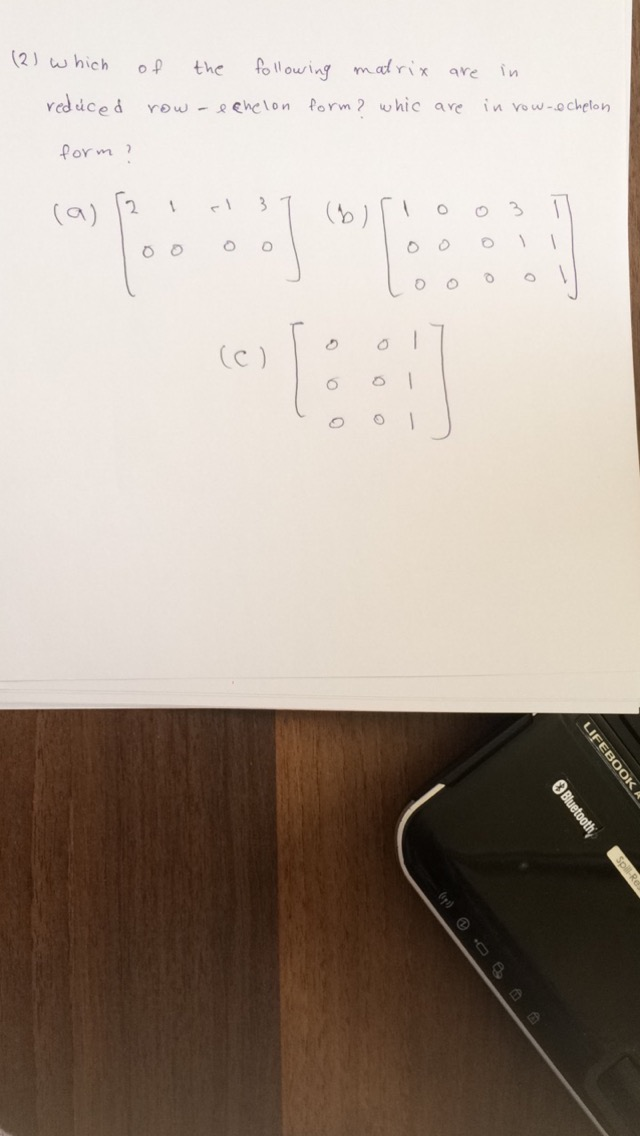 (2) which of the following matrix are in
reduced row-echelon form? whic are in row-echelon
form?
(a) [2 1 -1 3] (b) [1 0 0 3 1]
0 0 0 0 0 0 0 1 1
0 0 0 0 1
(c) [0 0 1]
0 0 1
0 0 1
LIFEBOOK A
Bluetooth
Spill-Re